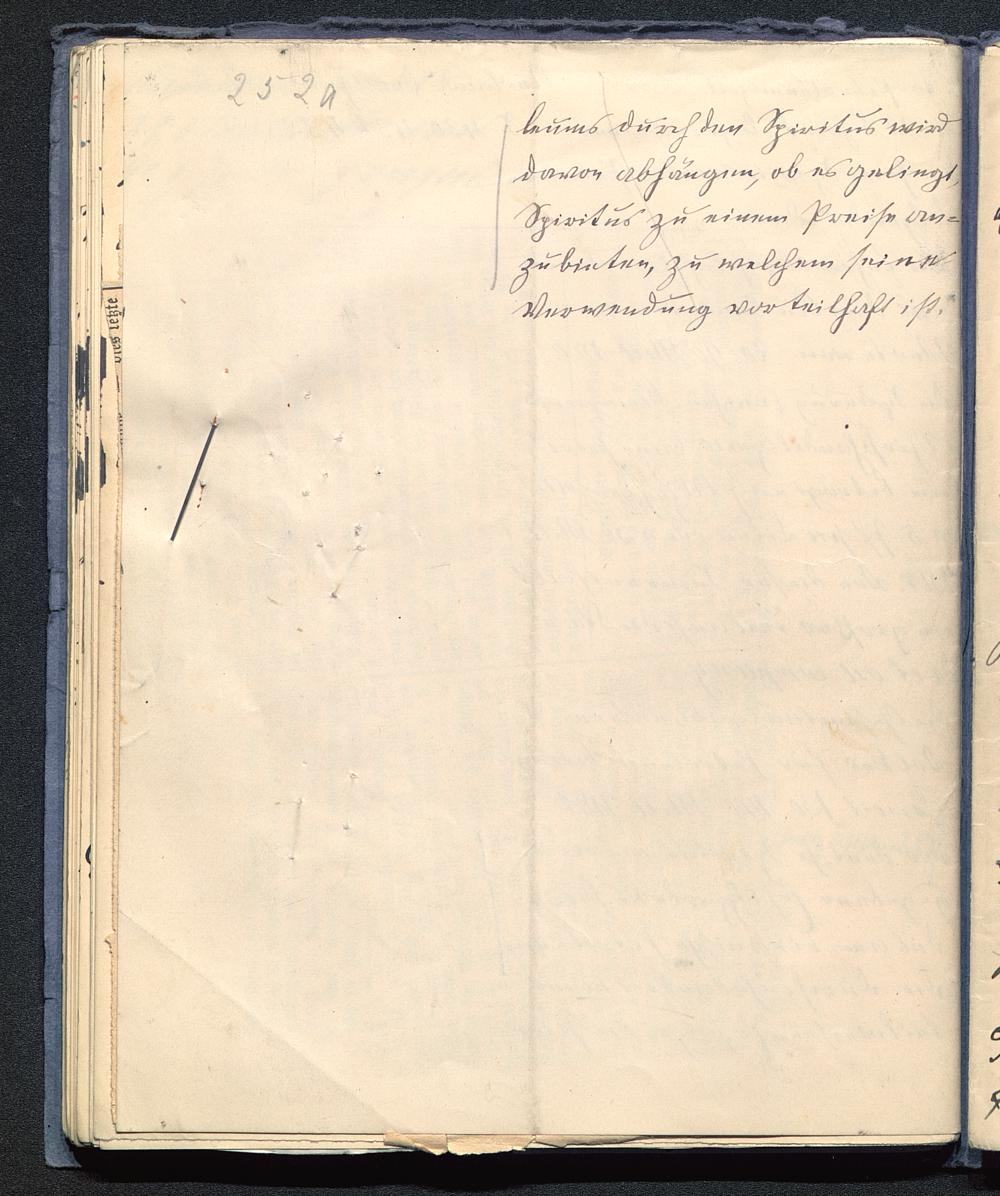 252a
leums durch den Spiritus wird
davon abhängen, ob es gelingt,
Spiritus zu einem Preise an=
zubieten, zu welchem seine
Verwendung vorteilhaft ist.